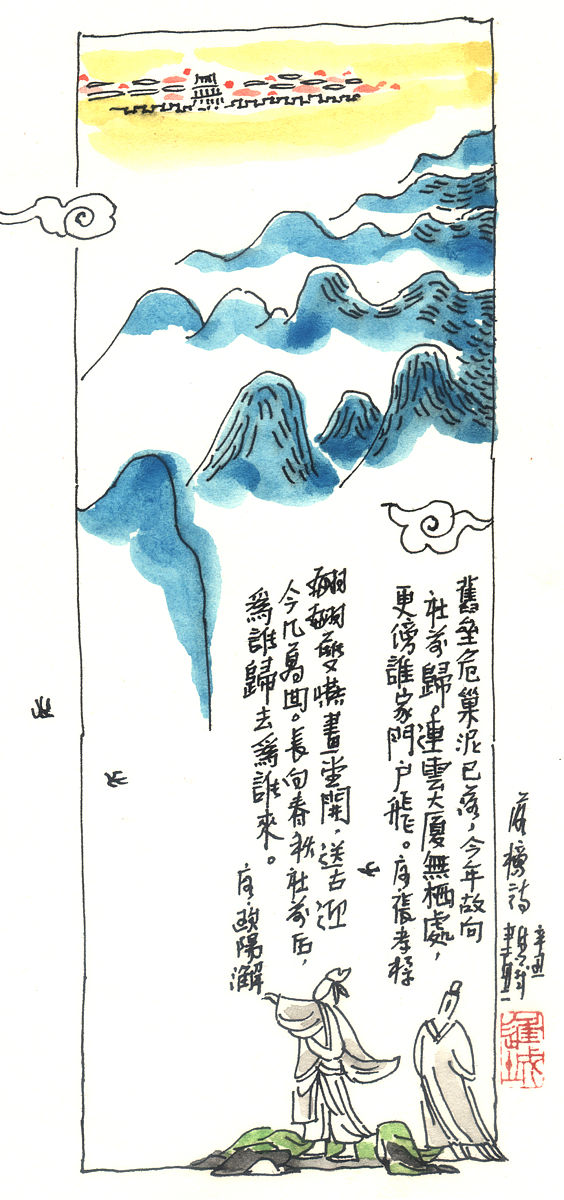 落榜詩
辛丑
舊壘危巢泥已落,今年故向
社前歸。連雲大廈無栖處,
更傍誰家門户飛。唐張孝標
翩翩雙燕畫堂開,送古迎
今几萬回。長向春秋社前后,
爲誰歸去爲誰來。
唐·歐陽澥